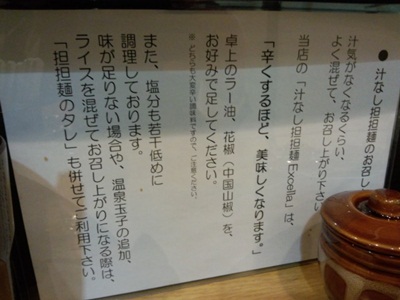 ● 汁なし担担麺のお召し
汁気がなくなるくらい、
よく混ぜて、お召し上がり下さい
当店の「汁なし担担麺Excella」は、
「辛くするほど、美味しくなります。」
卓上のラー油、花椒（中国山椒）を、
お好みで足してください。
※ どちらも大変辛い調味料ですので、ご注意ください。
また、塩分も若干低めに
調理しております。
味が足りない場合や、温泉玉子の追加、
ライスを混ぜてお召し上がりになる際は、
「担担麺のタレ」も併せてご利用下さい。